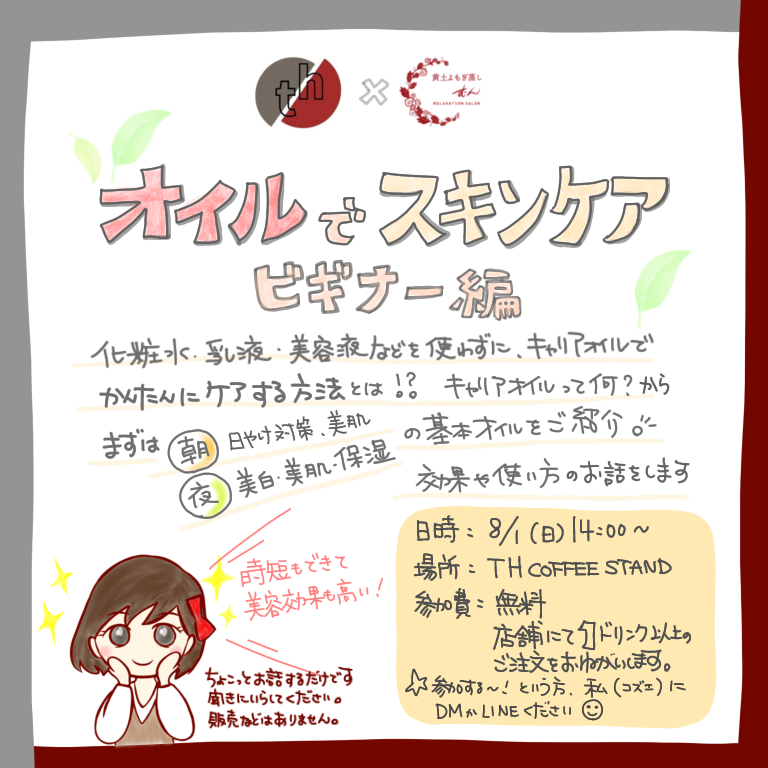 th
×
黄土よもぎ蒸し
むん
RELAXATION SALON
オイルでスキンケア
ビギナー編
化粧水・乳液・美容液などを使わずに、キャリアオイルで
かんたんにケアする方法とは!? キャリアオイルって何?から
まずは 朝 日やけ対策、美肌 の基本オイルをご紹介。
夜 美白・美肌・保湿 効果や使い方のお話をします
時短もできて
美容効果も高い!
ちょこってお話するだけです
聞きにいらしてください。
販売などはありません。
日時: 8/1(日)14:00〜
場所: TH COFFEE STAND
参加費: 無料
店舗にて1ドリンク以上の
ご注文をおねがいします。
☆参加する〜!という方、私(コズエ)に
DMかLINEください☺